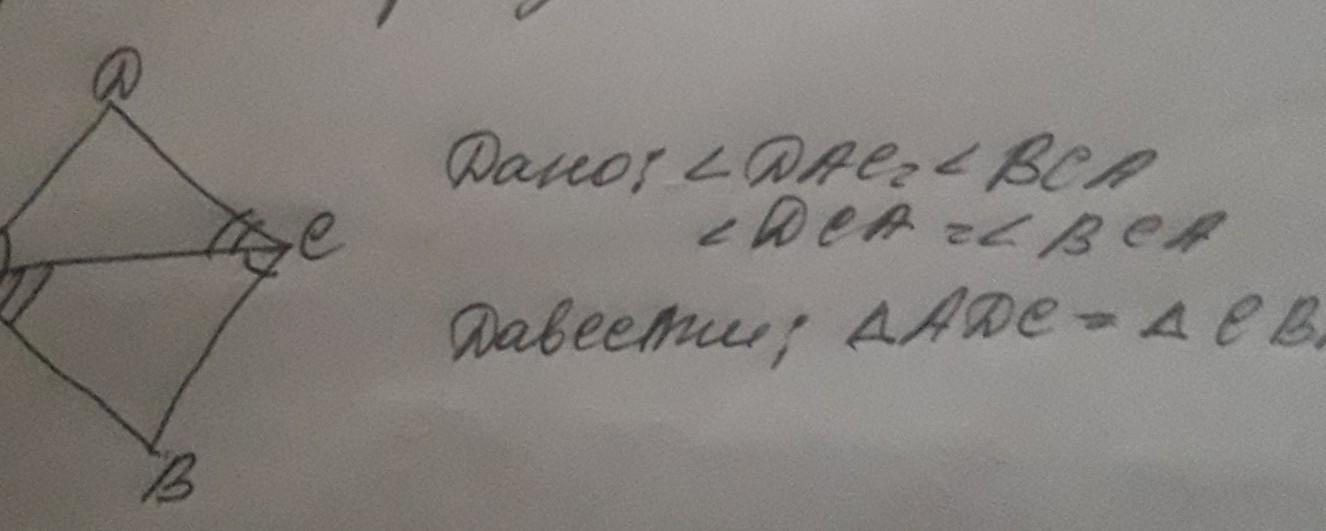 D
C
B
Дано: <DAC = < BCA
<DCA = < BCA
Давести; △ADC = △CBA